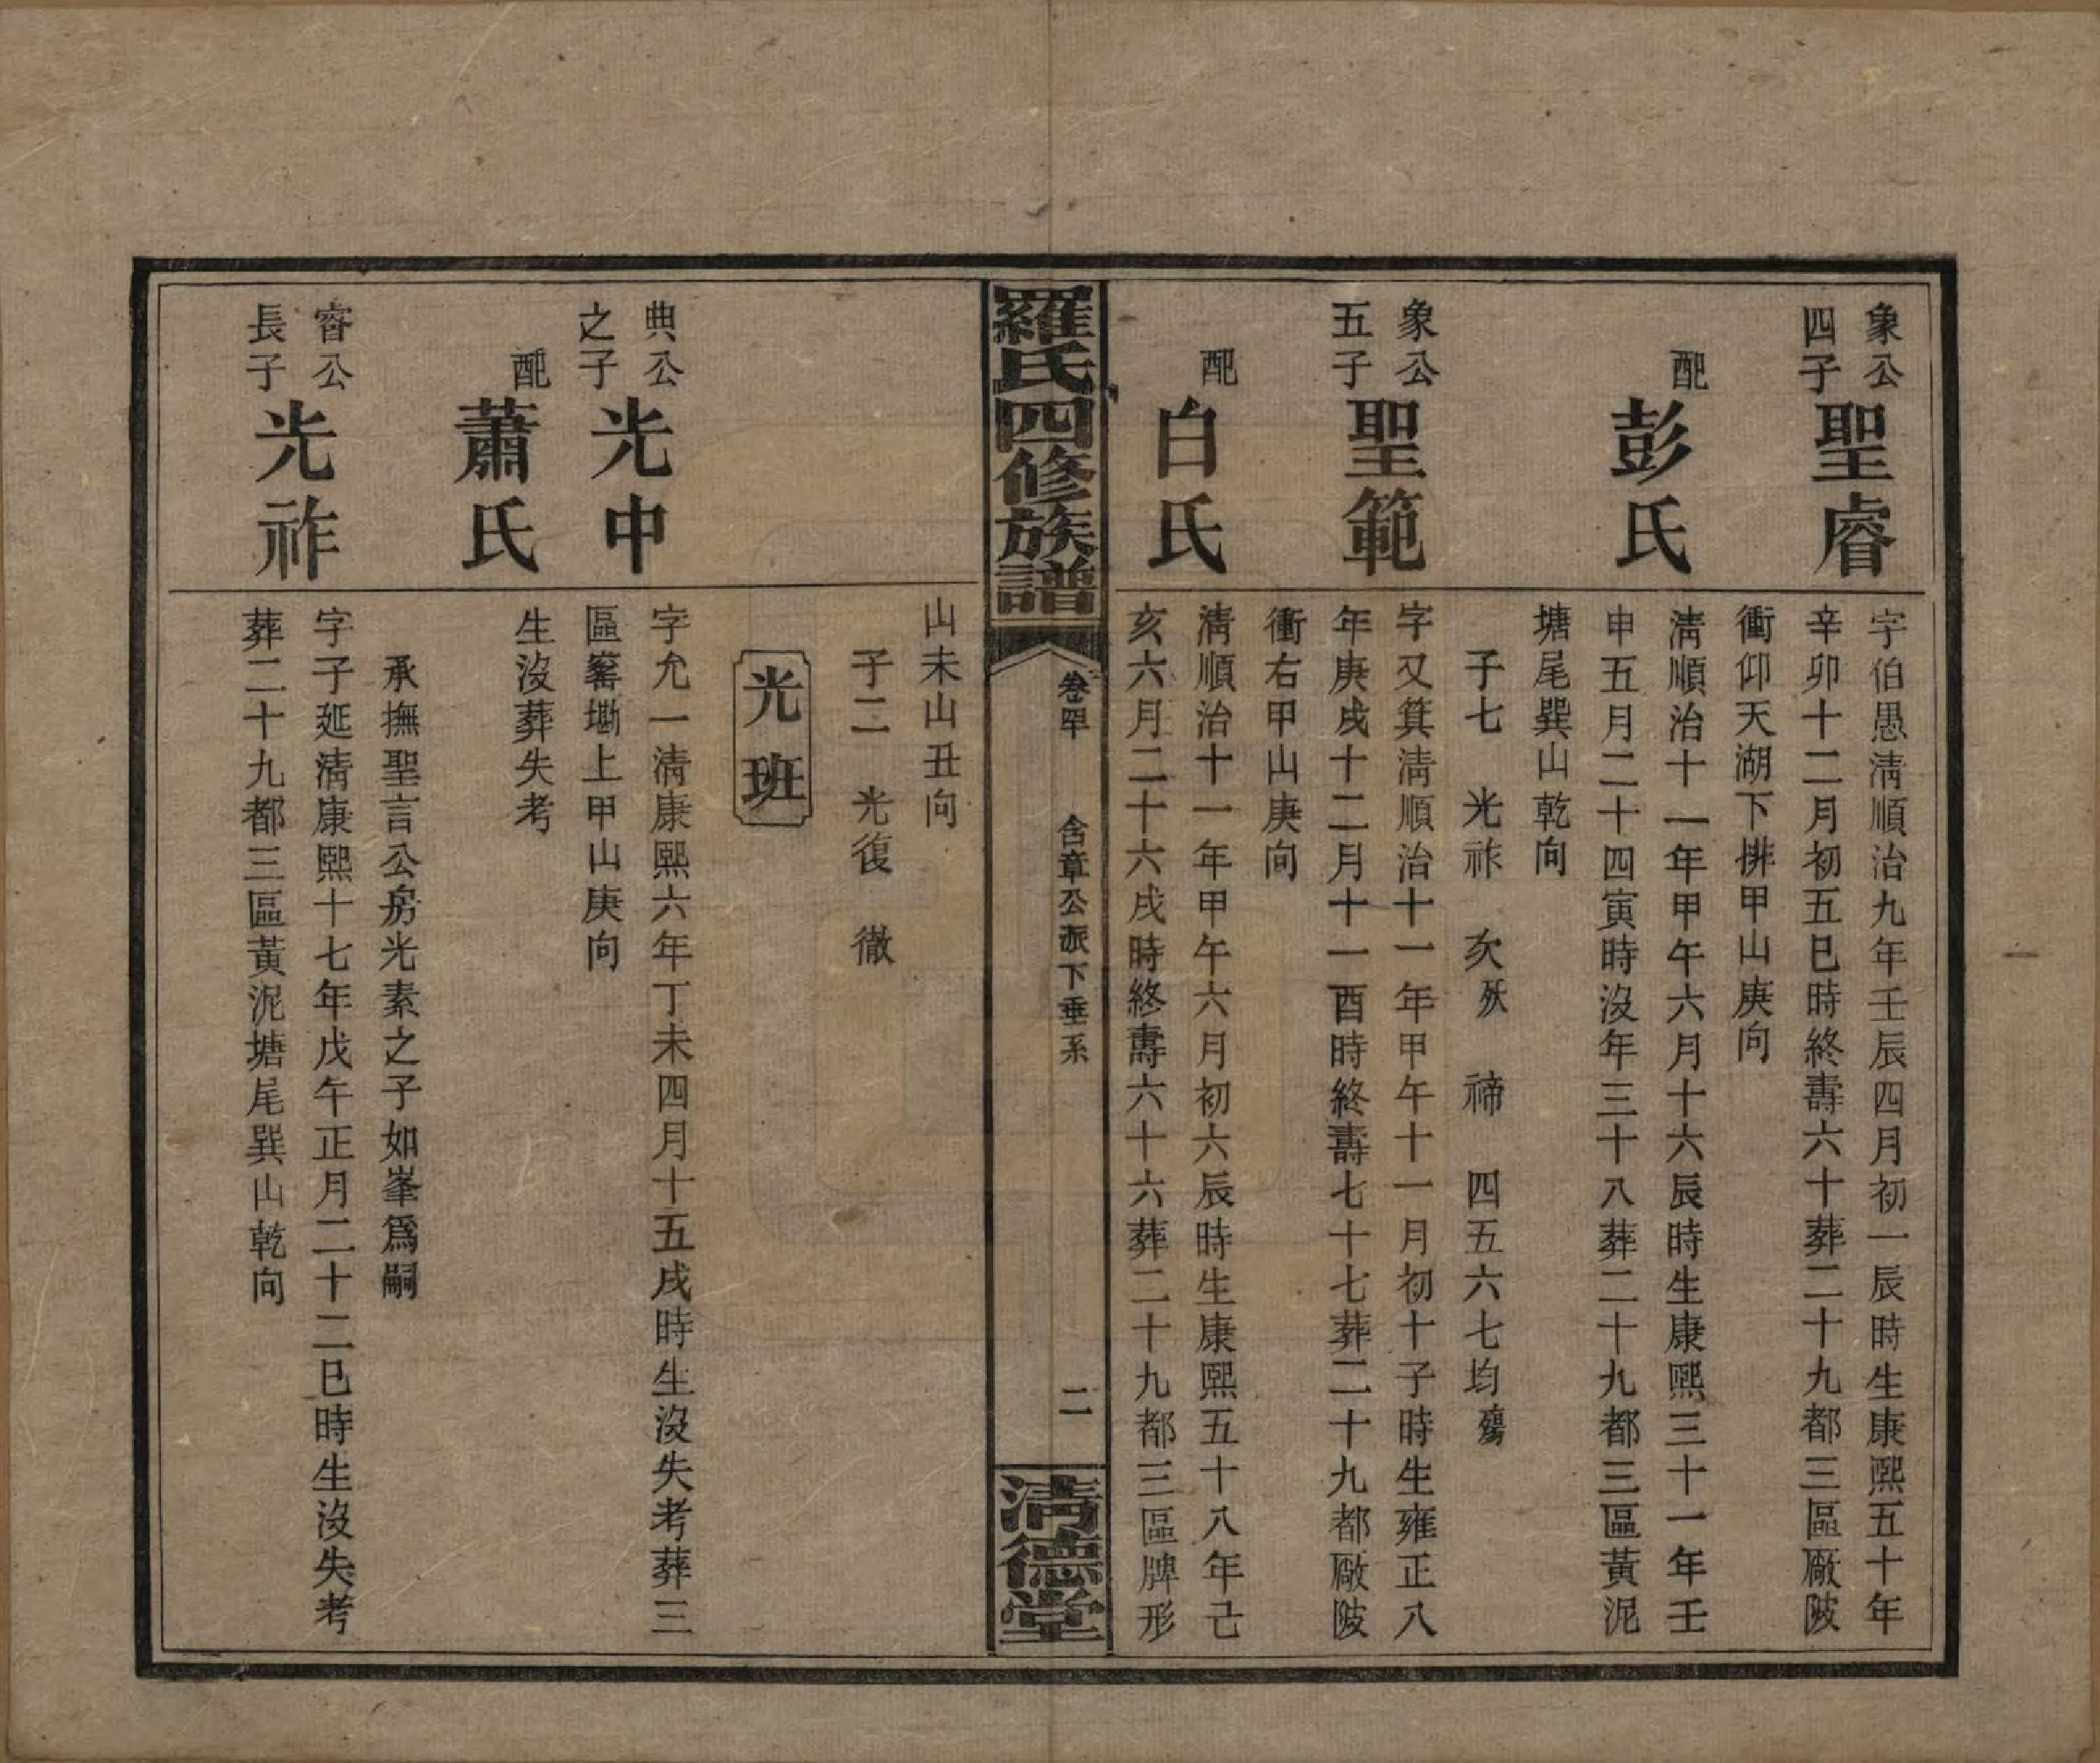 象公
四子
聖睿
字伯愚淸順治九年壬辰四月初一辰時生康熙五十年
辛卯十二月初五巳時終壽六十葬二十九都三區厰陂
衝仰天湖下排甲山庚向
配
彭氏
淸順治十一年甲午六月十六辰時生康熙三十一年壬
申五月二十四寅時沒年三十八葬二十九都三區黃泥
塘尾巽山乾向
子七 光祚 次殀 禘 四五六七均殤
象公
五子
聖範
字又箕淸順治十一年甲午十一月初十子時生雍正八
年庚戌十二月十一酉時終壽七十七葬二十九都厰陂
衝右甲山庚向
配
白氏
淸順治十一年甲午六月初六辰時生康熙五十八年己
亥六月二十六戌時終壽六十六葬二十九都三區牌形
羅氏四修族譜
卷四十 含章公派下垂系
二
淸德堂
山未山丑向
子二 光復 徹
光班
典公
之子
光中
字允一淸康熙六年丁未四月十五戌時生沒失考葬三
區窰塝上甲山庚向
配
蕭氏
生沒葬失考
承撫聖言公房光素之子如峯爲嗣
睿公
長子
光祚
字子延淸康熙十七年戊午正月二十二巳時生沒失考
葬二十九都三區黃泥塘尾巽山乾向